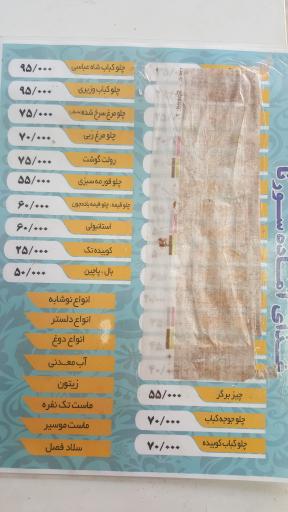 چلو کباب شاه عباسی ۹۵/۰۰۰
چلو کباب وزیری ۹۵/۰۰۰
چلو مرغ سرخ شده ۷۵/۰۰۰
چلو مرغ ربی ۷۰/۰۰۰
رولت گوشت ۷۵/۰۰۰
چلو قورمه سبزی ۵۵/۰۰۰
چلو قیمه ، چلو قیمه بادمجون ۶۰/۰۰۰
استانبولی ۶۰/۰۰۰
کوبیده تک ۲۵/۰۰۰
بال ، پاچین ۵۰/۰۰۰
انواع نوشابه
انواع دلستر
انواع دوغ
آب معدنی
زیتون
ماست تک نفره
ماست موسیر
سالاد فصل
چیز برگر ۵۵/۰۰۰
چلو جوجه کباب ۷۰/۰۰۰
چلو کباب کوبیده ۷۰/۰۰۰
غذای آماده سورنا